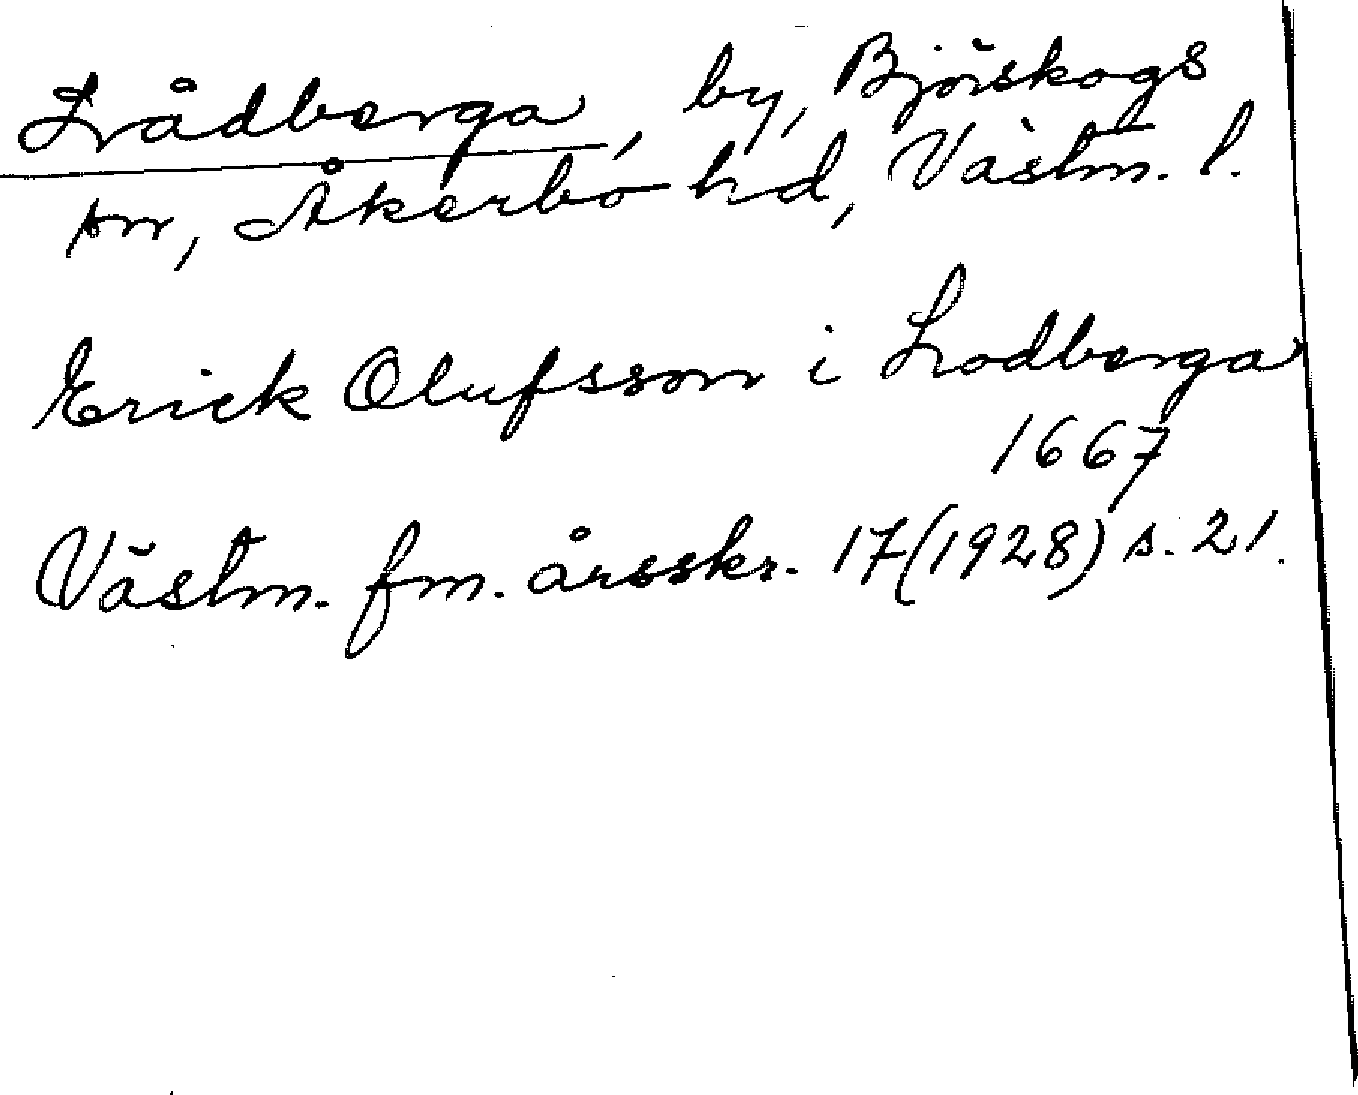 Lådberga, by, Björskogs
sn, Åkerbo hd, Västm. l.
Erick Olufsson i Lodberga
1667
Västm. fm. årsskr. 17 (1928) s. 21.